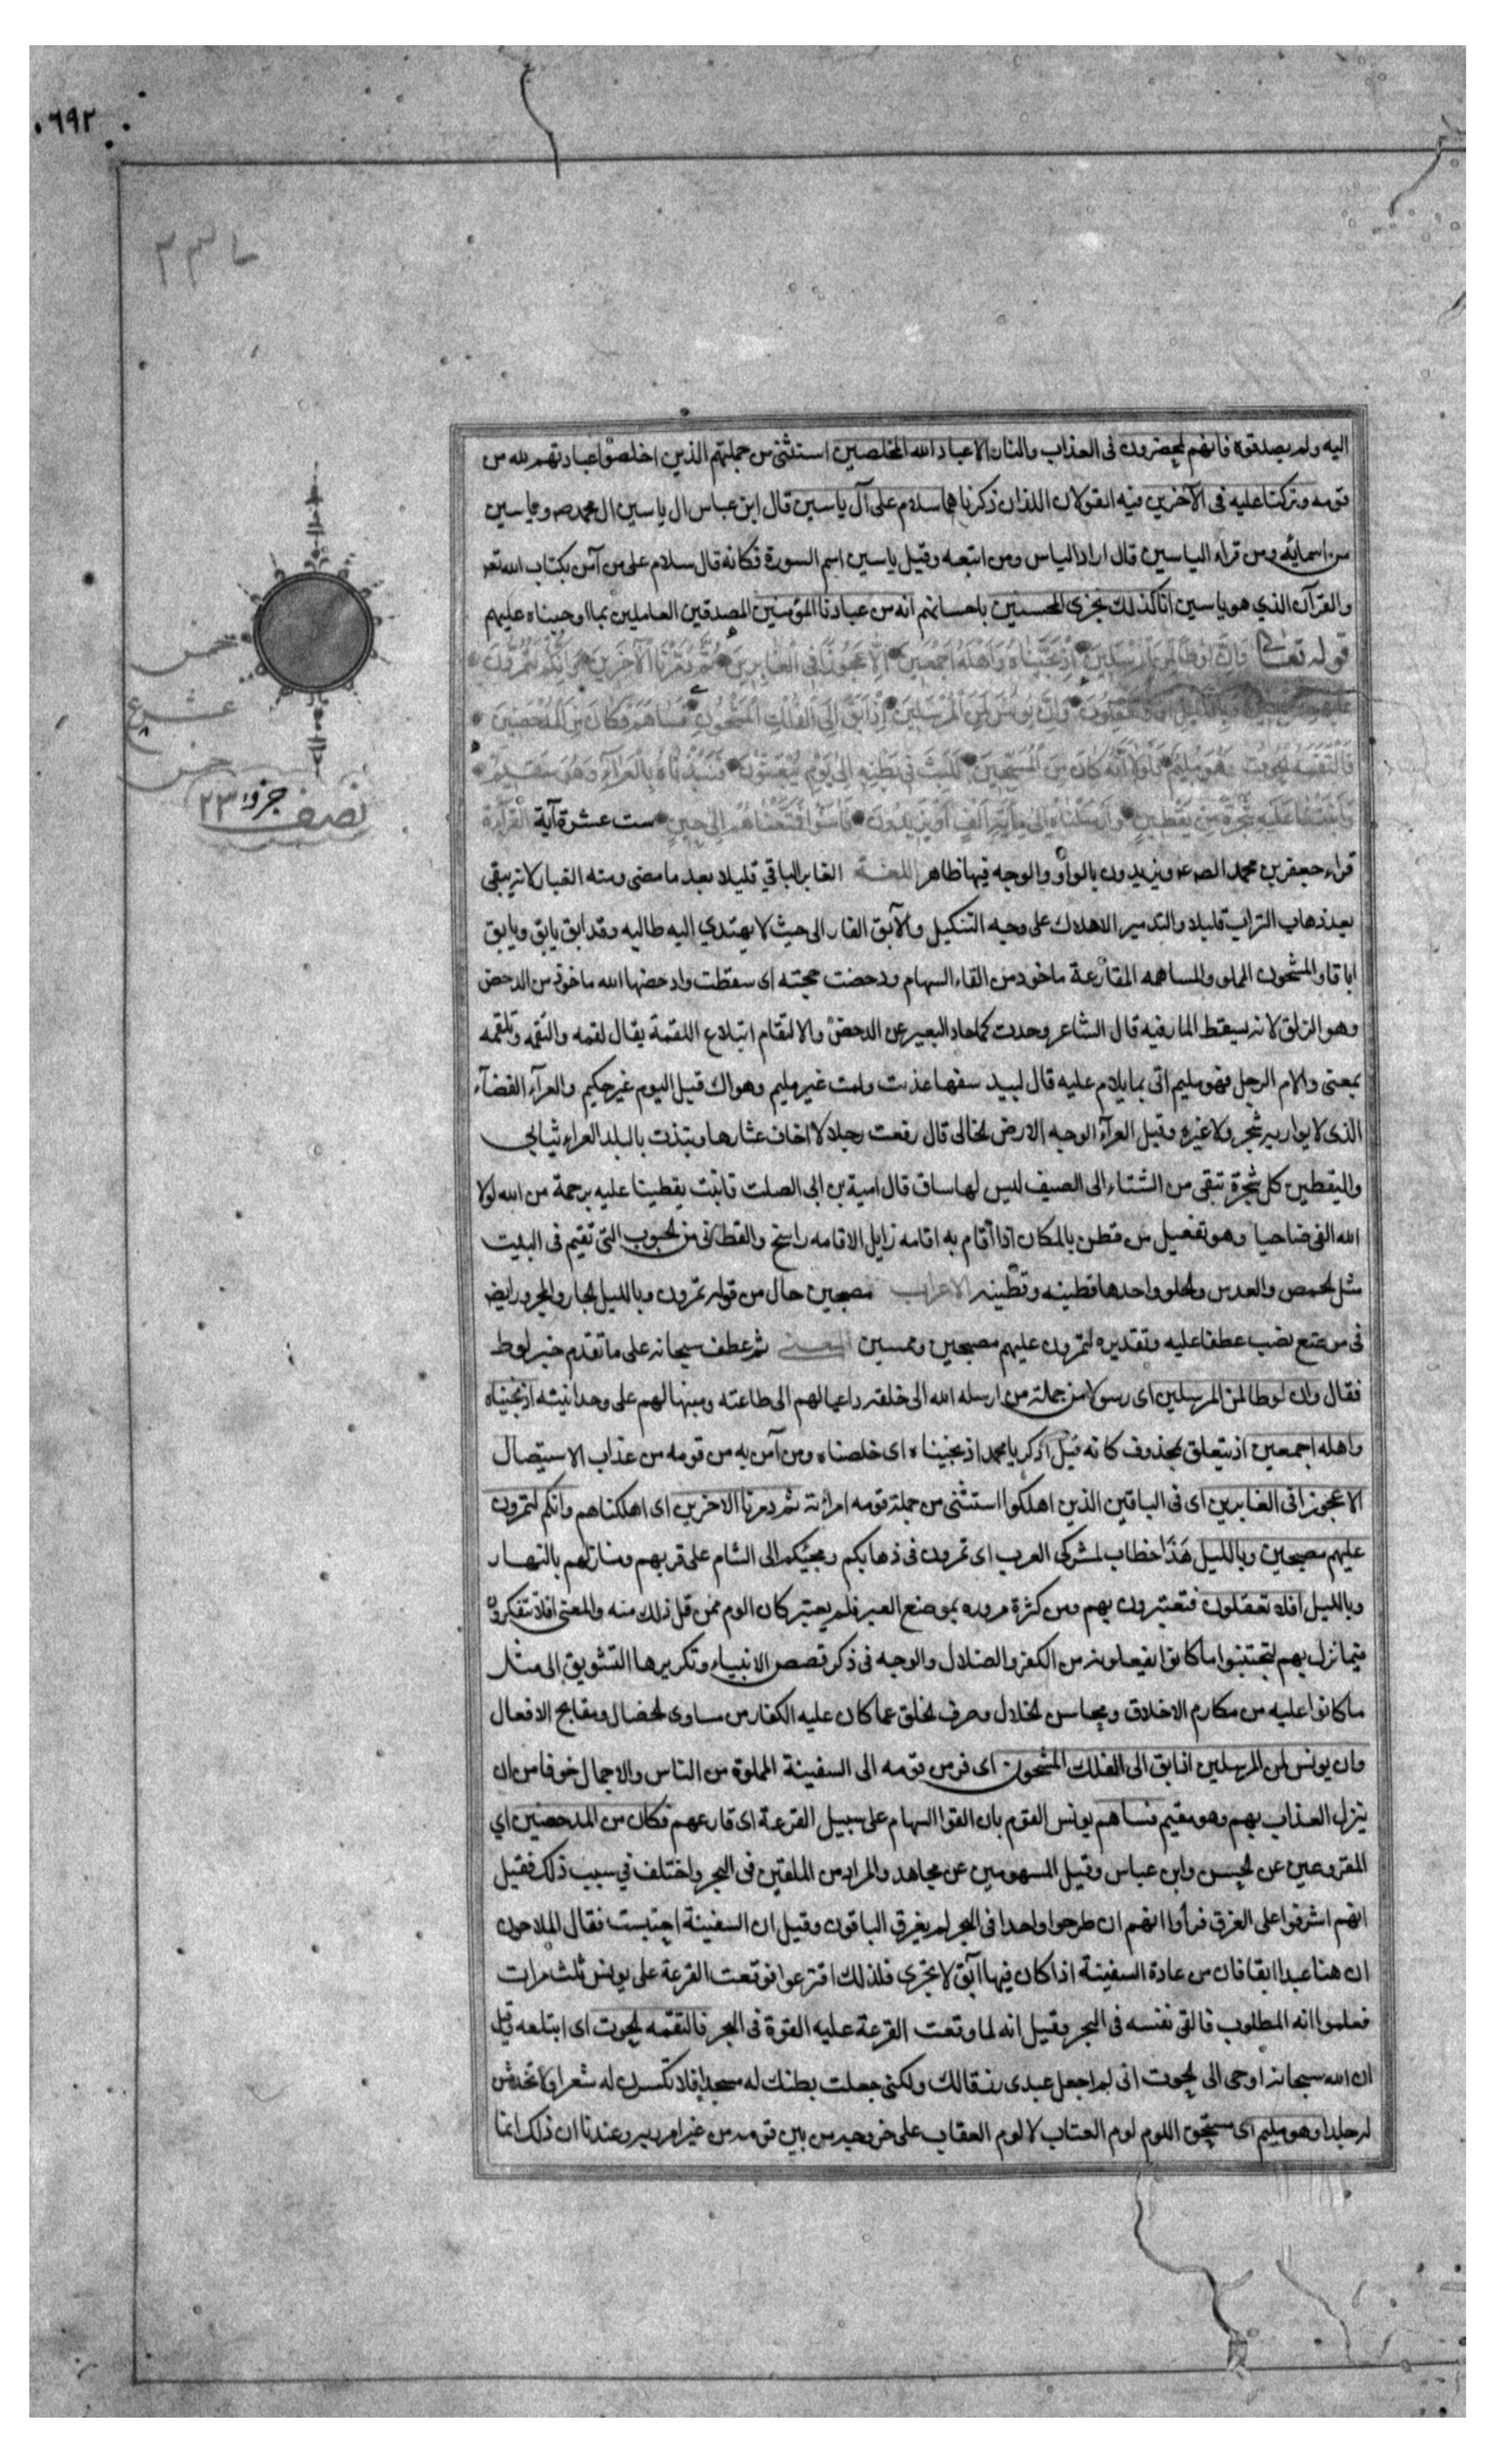 ٦٩٢
اليه ولم يصدقوه فانهم لمحضرون فى العذاب والنار الا عباد الله المخلصين استثنى من جملتهم الذين اخلصوا عبادتهم لله من
قومه وتركنا عليه فى الآخرين فيه القولان اللذان ذكرناهما سلام على آل ياسين قال ابن عباس ال ياسين ال محمد ص وياسين
من اسمائه ومن قراء الياسين قال اراد الياس ومن اتبعه وقيل ياسين اسم السورة فكانه قال سلام على من آمن بكتاب الله تعـ
والقرآن الذي هو ياسين انا كذلك نجزى المحسنين باحسانهم انه من عبادنا المؤمنين المصدقين العاملين بما اوجبناه عليهم
قوله تعالى وَاِنَّ لُوطًا لَمِنَ الْمُرْسَلِينَ اِذْ نَجَّيْنَاهُ وَاَهْلَهُ اَجْمَعِينَ اِلَّا عَجُوزًا فِى الْغَابِرِينَ ثُمَّ دَمَّرْنَا الْآخَرِينَ وَاِنَّكُمْ لَتَمُرُّونَ
عليهم مصبحين وبالليل افلا تعقلون وَاِنَّ يونُسَ لَمِنَ الْمُرْسَلِينَ اِذْ اَبَقَ اِلَى الْفُلْكِ الْمَشْحُونِ فَسَاهَمَ فَكَانَ مِنَ الْمُدْحَضِينَ
فَالْتَقَمَهُ الْحُوتُ وَهُوَ مُلِيمٌ فَلَوْلَا اَنَّهُ كَانَ مِنَ الْمُسَبِّحِينَ لَلَبِثَ فِى بَطْنِهِ اِلَى يَوْمِ يُبْعَثُونَ فَنَبَذْنَاهُ بِالْعَرَاءِ وَهُوَ سَقِيمٌ
وَاَنْبَتْنَا عَلَيْهِ شَجَرَةً مِنْ يَقْطِينٍ وَاَرْسَلْنَاهُ اِلَى مِائَةِ اَلْفٍ اَوْ يَزِيدُونَ فَآمَنُوا فَمَتَّعْنَاهُمْ اِلَى حِينٍ ست عشرة آية القراءة
قراء جعفر بن محمد الصـ ع ويزيدون بالواو والوجه فيها ظاهر اللغــة الغابر الباقي قليلا بعد ما مضى ومنه الغبار لانه يبقى
بعد ذهاب التراب قليلا والتدمير الاهلاك على وجه التنكيل والآبق الفار الى حيث لا يهتدي اليه طالبه وقد ابق يابق ويابق
اباقا والمشحون المملو والمساهمه المقارعة ماخوذ من القاء السهام ودحضت حجته اى سقطت وادحضها الله ماخوذ من الدحض
وهو الزلق لانه يسقط المار فيه قال الشاعر وحدت كما حاد البعير عن الدحض والالتقام ابتلاع اللقمة يقال لقمه والتقمه وتلقمه
بمعنى والام الرجل فهو مليم اتى بما يلام عليه قال لبيد سفها عذلت ولمت غير مليم وهواك قبل اليوم غير حكيم والعرآء الفضآء
الذى لا يواريه شجر ولا غيره وقيل العرآء الوجه الارض الخالى قال رفعت رجلا لا اخاف عثارها ونبذت بالبلد العراء ثيابي
واليقطين كل شجرة تبقى من الشتاء الى الصيف ليس لها ساق قال امية بن ابى الصلت فانبت يقطينا عليه برحمة من الله لولا
الله الفى ضاحيا وهو تفعيل من قطن بالمكان اذا اقام به اقامه زايل الاقامه راسخ والقطانى من الحبوب التى تقيم فى البيت
مثل الحمص والعدس والخلر واحدها قطينه وقطينه الاعراب مصبحين حال من قوله تمرون وبالليل الجار والمجرور ايضا
فى موضع نصب عطفا عليه وتقديره لتمرون عليهم مصبحين وممسين المعــنى ثم عطف سبحانه على ما تقدم خبر لوط
فقال وان لوطا لمن المرسلين اى رسولا من جملة من ارسله الله الى خلقه داعيا لهم الى طاعته ومنبها لهم على وحدانيته اذ نجيناه
واهله اجمعين اذ يتعلق بمحذوف كانه قيل اذكر يا محمد اذ نجيناه اى خلصناه ومن آمن به من قومه من عذاب الاستيصال
الا عجوزا فى الغابرين اى فى الباقين الذين اهلكوا استثنى من جملة قومه امراته ثم دمرنا الاخرين اى اهلكناهم وانكم لتمرون
عليهم مصبحين وبالليل هَذَا خطاب لمشركى العرب اى تمرون فى ذهابكم ومجيئكم الى الشام على قربهم ومنازلهم بالنهــار
وبالليل افلا تعقلون فتعتبرون بهم ومن كثرة مروره بموضع العبر فلم يعتبر كان الوم ممن قل ذلك منه والمعنى افلا تتفكرون
فيما نزل بهم لتجتنبوا ما كانوا يفعلونه من الكفر والضلال والوجه فى ذكر قصص الانبياء وتكريرها التشويق الى مثل
ما كانوا عليه من مكارم الاخلاق ومحاسن الخلال وصرف الخلق عما كان عليه الكفار من مساوى الخصال ومقابح الافعال
وان يونس لمن المرسلين اذ ابق الى الفلك المشحون اى فر من قومه الى السفينة المملوة من الناس والاحمال خوفا من ان
ينزل العذاب بهم وهو مقيم فساهم يونس القوم بان القوا السهام على سبيل القرعة اى قارعهم فكان من المدحضين اي
المقروعين عن الحسن وابن عباس وقيل المسهومين عن مجاهد والمراد من الملقين فى البحر واختلف في سبب ذلك فقيل
انهم اشرفوا على الغرق فرأوا انهم ان طرحوا واحدا فى البحر لم يغرق الباقون وقيل ان السفينة احتبست فقال الملاحون
ان هنا عبدا ابقا فان من عادة السفينة اذا كان فيها آبق لا تجرى فلذلك اقترعوا فوقعت القرعة على يونس ثلث مرات
فعلموا انه المطلوب فالقى نفسه فى البحر وقيل انه لما وقعت القرعة عليه القوة فى البحر فالتقمه الحوت اى ابتلعه وقيل
ان الله سبحانه اوحى الى الحوت انى لم اجعل عبدى رزقا لك ولكنى جعلت بطنك له مسجدا فلا تكسرن له شعرا ولا تخدشن
له جلدا وهو مليم اى مستحق اللوم لوم العتاب لا لوم العقاب على خروجه من بين قومه من غير امر ربه وعندنا ان ذلك انما
خمس
عشر ع
خمس
نصف جزو ٢٣